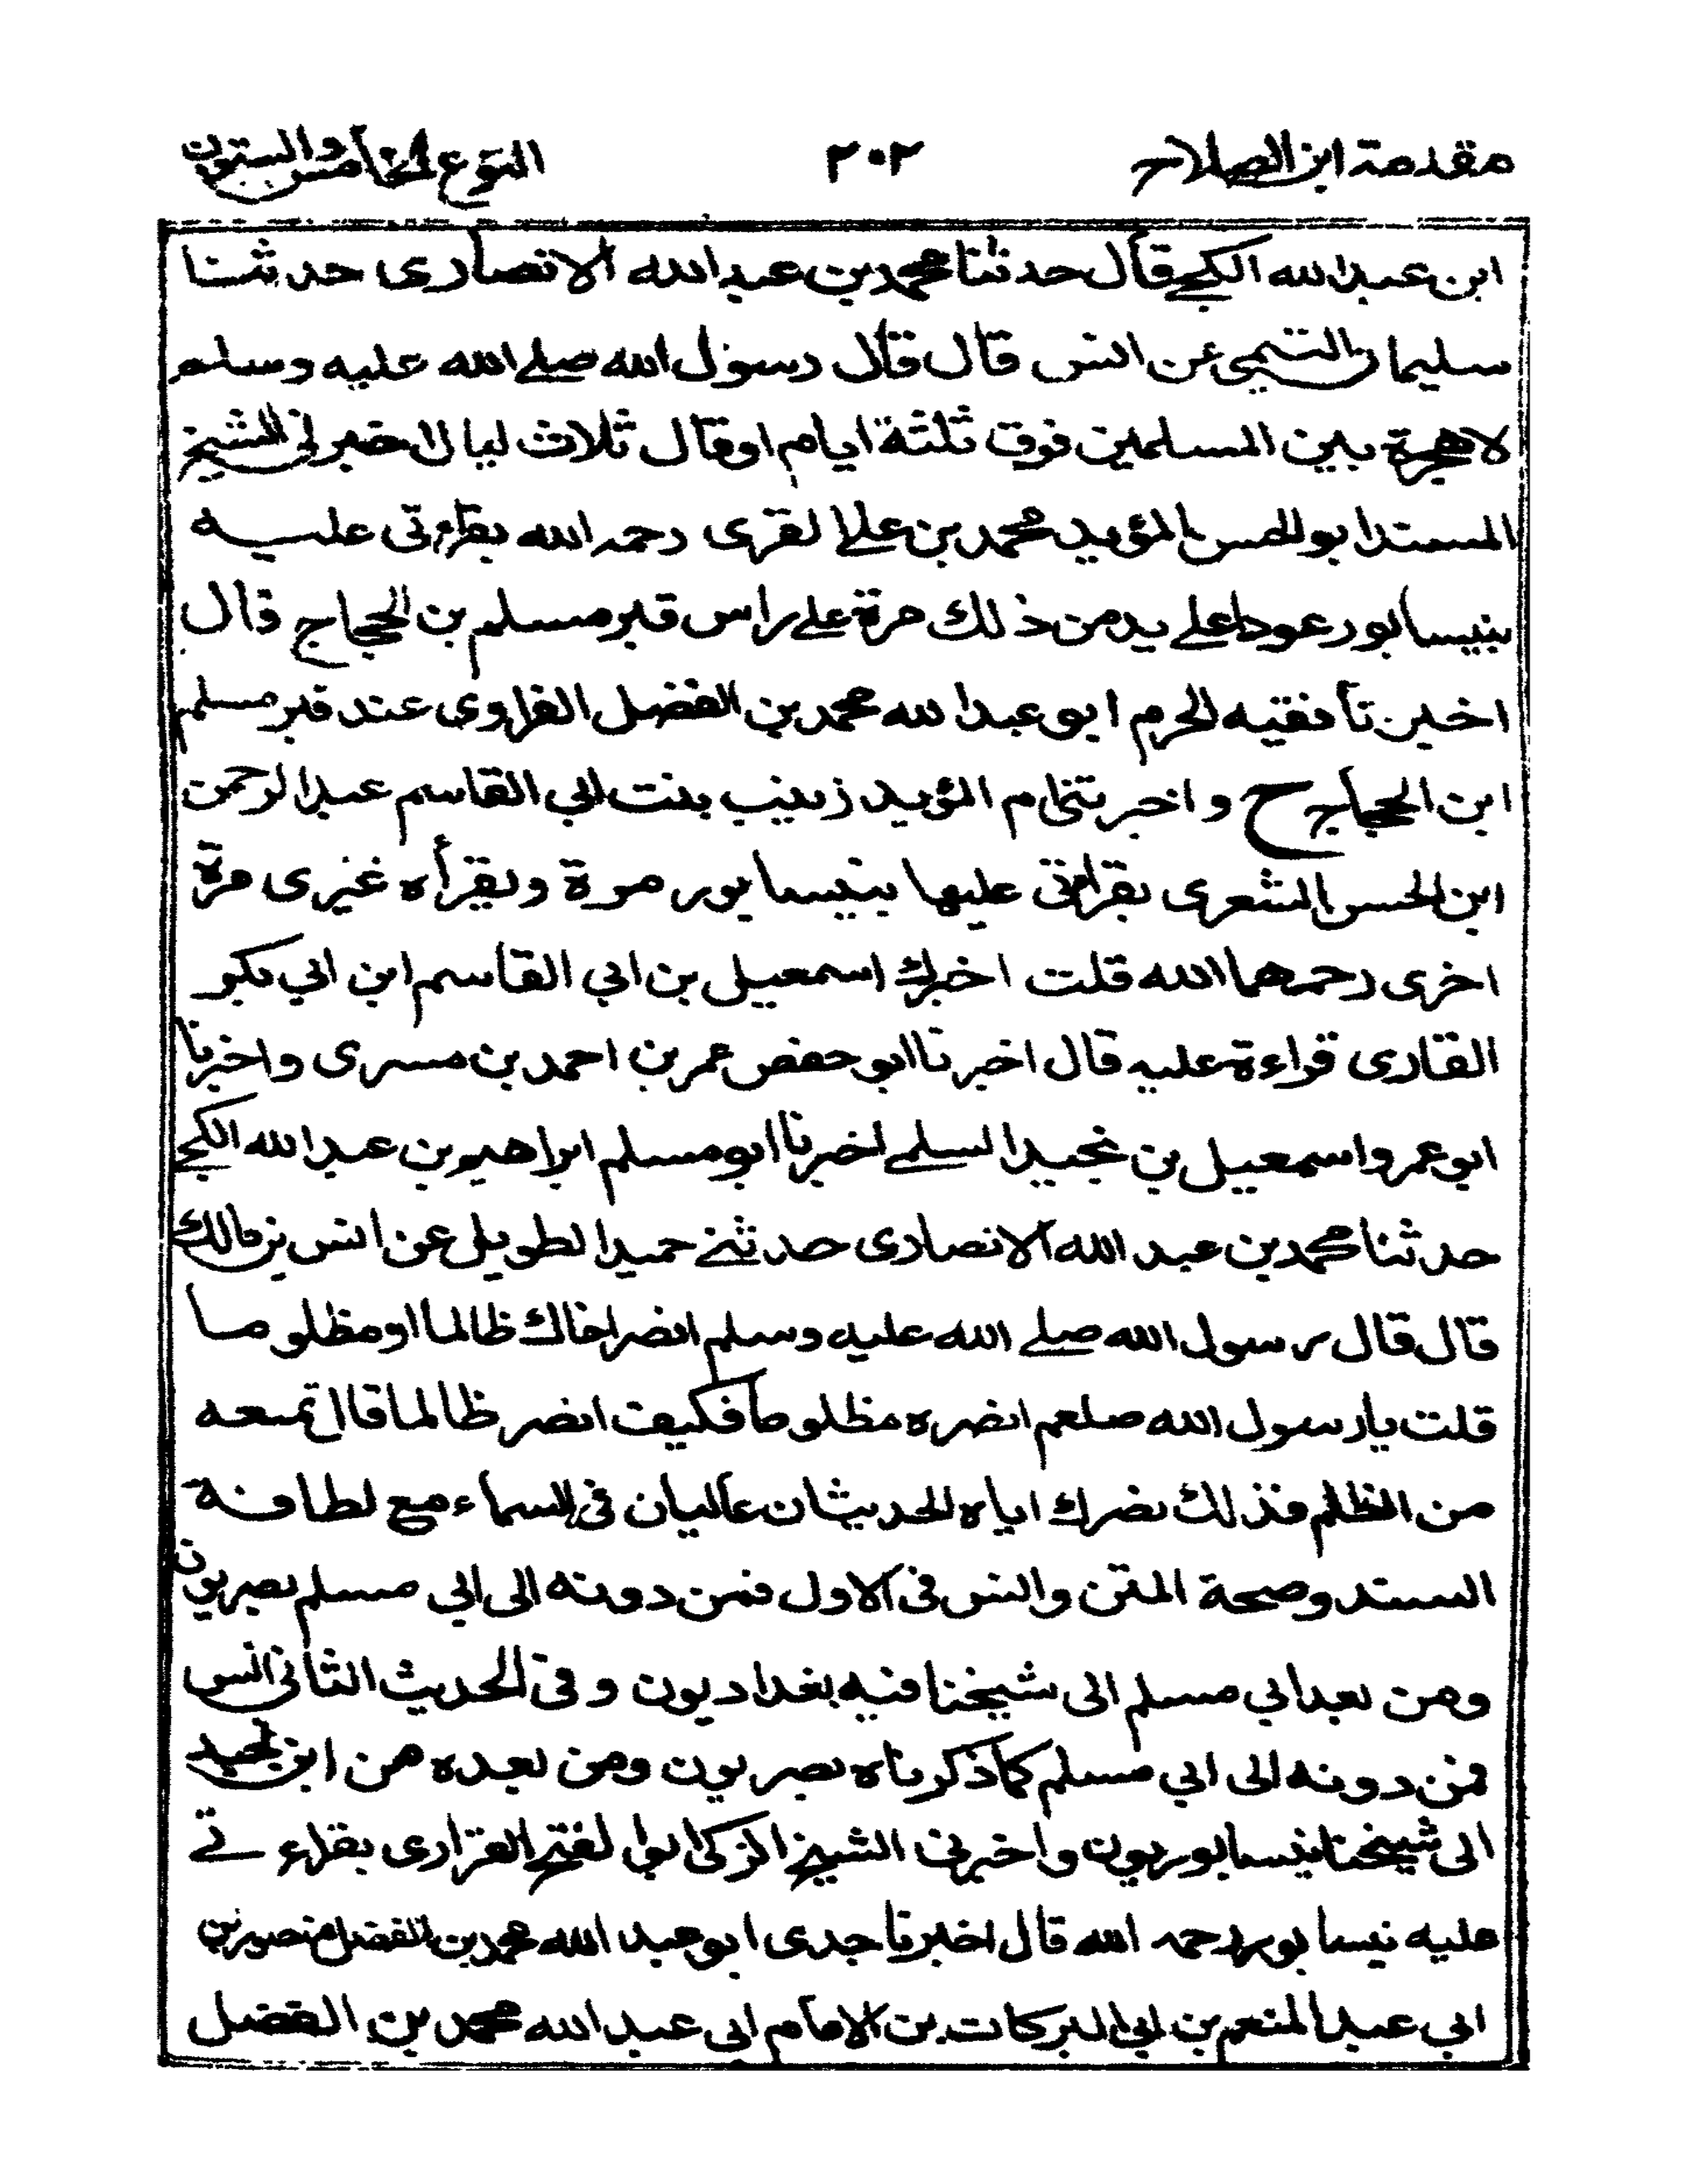 مقدمة ابن الصلاح
٢٠٢
النوع الخامس والستون
ابن عبد الله الكجے قال حدثنا محمد بن عبد الله الانصاری حدثنا
سلیمان التیمی عن انس قال قال رسول الله صلے الله علیه وسلم
لا هجرة بین المسلمین فوق ثلثة ایام او قال ثلاث لیال اخبرنی الشیخ
المسند ابو الحسن المؤید محمد بن علے المقری رحمه الله بقراءتی علیه
بنیسابور عودا علے بدء من ذلك مرة علے راس قبر مسلم بن الحجاج قال
اخبرنا فقیه الحرم ابو عبد الله محمد بن الفضل الفراوی عند قبر مسلم
ابن الحجاج ح و اخبرتنی ام المؤید زینب بنت ابی القاسم عبد الرحمن
ابن الحسن الشعری بقرائتی علیها بنیسابور مرة وبقرأة غیری مرة
اخری رحمهما الله قلت اخبرك اسمعیل بن ابی القاسم ابن ابی بکر
القاری قراءة علیه قال اخبرنا ابو حفص عمر بن احمد بن مسری واخبرنا
ابو عمر واسمعیل بن نجید السلمے اخبرنا ابو مسلم ابراهیم بن عبد الله الکجے
حدثنا محمد بن عبد الله الانصاری حدثنے حمید الطویل عن انس بن مالك
قال قال رسول الله صلے الله علیه وسلم انصر اخاك ظالما او مظلوما
قلت یا رسول الله صلعم انصره مظلوما فکیف انصر ظالما قال تمنعه
من الظلم فذلك نصرك ایاه الحدیثان عالیان فی السماء مع لطافة
السند وصحة المتن وانس فی الاول فمن دونه الی ابی مسلم بصریون
ومن بعد ابی مسلم الی شیخنا فیه بغدادیون وفی الحدیث الثانی انس
فمن دونه الی ابی مسلم کما ذکرناه بصریون ومن بعده من ابن نجید
الی شیخنا نیسابوریون واخبرنی الشیخ الزکی ابو الفتح الفزاری بقراء تے
علیه نیسابور رحمه الله قال اخبرنا جدی ابو عبد الله محمد بن الفضل منصور بن
ابی عبد المنعم بن ابی البرکات بن الامام ابی عبد الله محمد بن الفضل